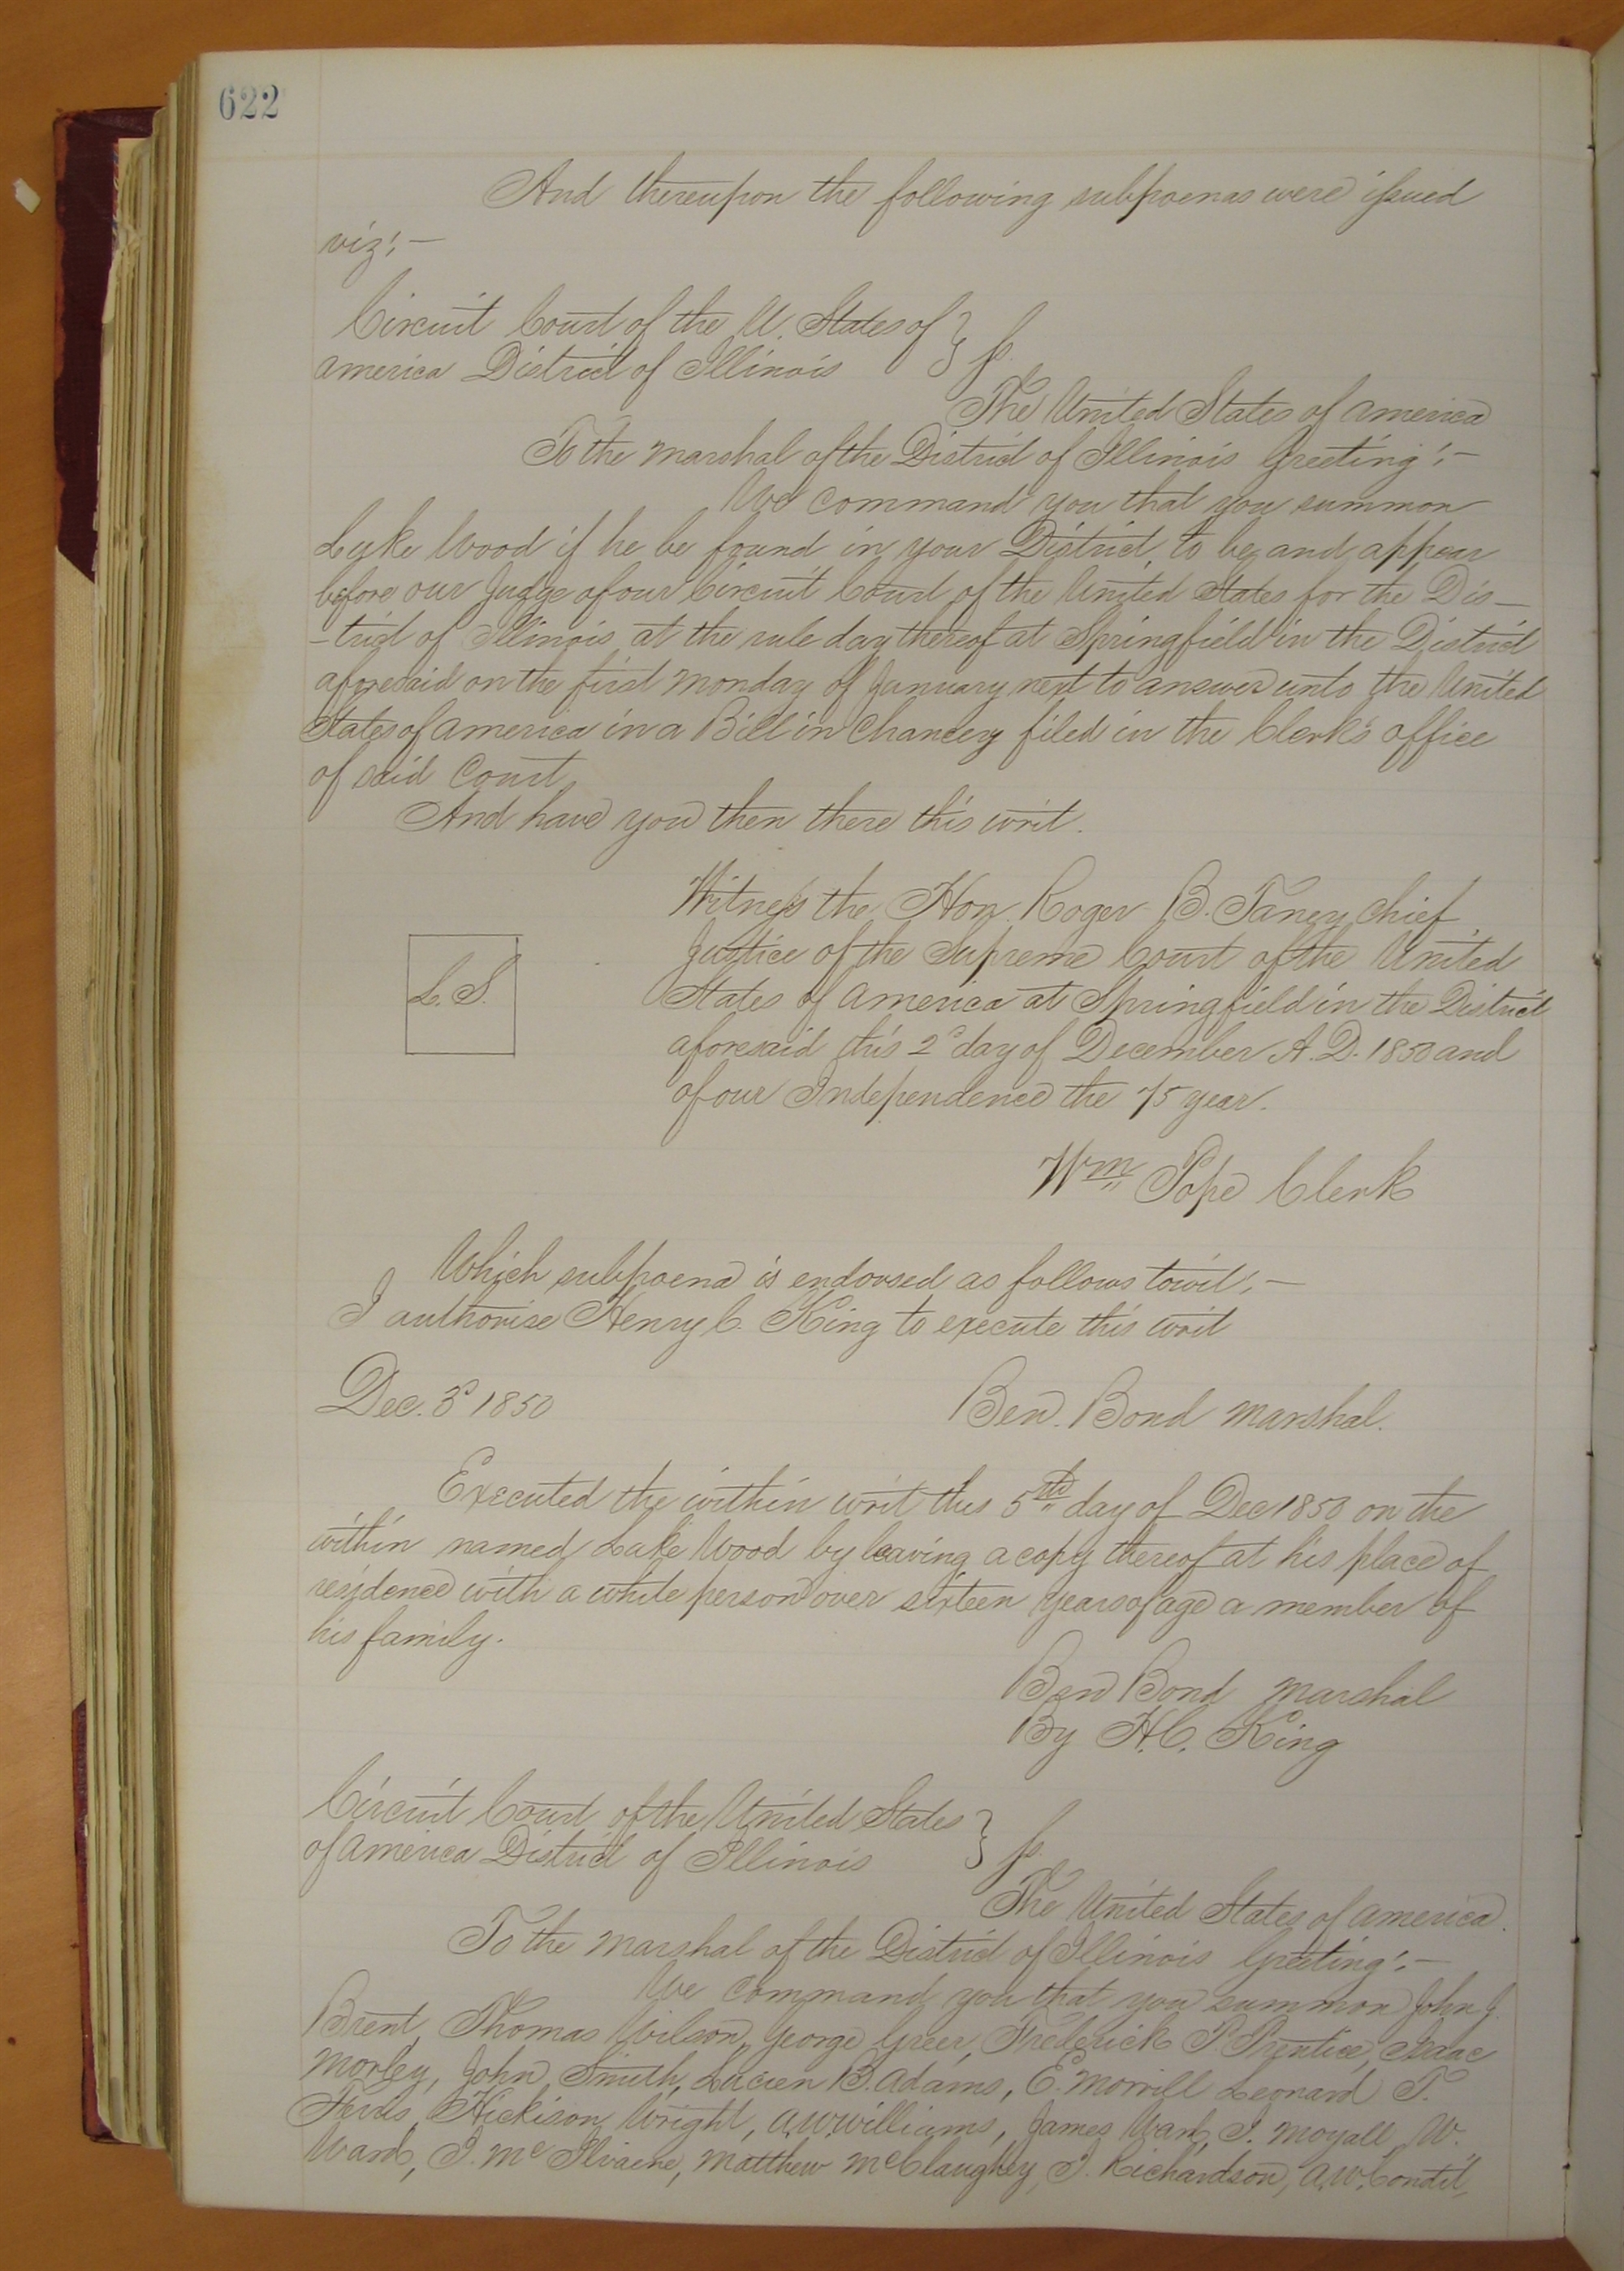 622
And thereupon the following subpoenas were issued
viz:—
Circuit Court of the U. States of }
america District of Illinois } ss.
The United States of america
To the marshal of the District of Illinois Greeting:—
We command you that you summon
Lyke Wood if he be found in your District, to be, and appear
before our Judge of our Circuit Court of the United States for the Dis—
—trict of Illinois at the rule day thereof at Springfield in the District
aforesaid on the first monday of January next to answer unto the United
States of america in a Bill in Chancery filed in the Clerk's office
of said Court,
And have you then there this writ.
Witness the Hon. Roger B. Taney chief
Justice of the Supreme Court of the United
L. S.
States of america at Springfield in the District
aforesaid this 2d day of December A. D. 1850 and
of our Independence the 75 year.
Wm Pope Clerk
Which subpoena is endorsed as follows towit:—
I authorise Henry C. King to execute this writ
Dec. 3d 1850 Ben. Bond marshal.
Executed the within writ this 5th day of Dec 1850 on the
within named Lake Wood by leaving a copy thereof at his place of
residence with a white person over sixteen years of age a member of
his family.
Ben Bond marshal
By H. C. King
Circuit Court of the United States }
of america District of Illinois } ss.
The United States of america.
To the marshal of the District of Illinois Greeting:—
We command you that you summon John J.
Brent, Thomas Wilson, George Greer, Frederick P. Prentice, Isaac
Morley, John Smith, Lucien B. Adams, E. Morrill Leonard T.
Ferris, Hickison Wright, A. W. Williams, James Ward, I. Moyall, W.
Ward, I. McIlvaine, Matthew McClaughey, I. Richardson, A. W. Condit,